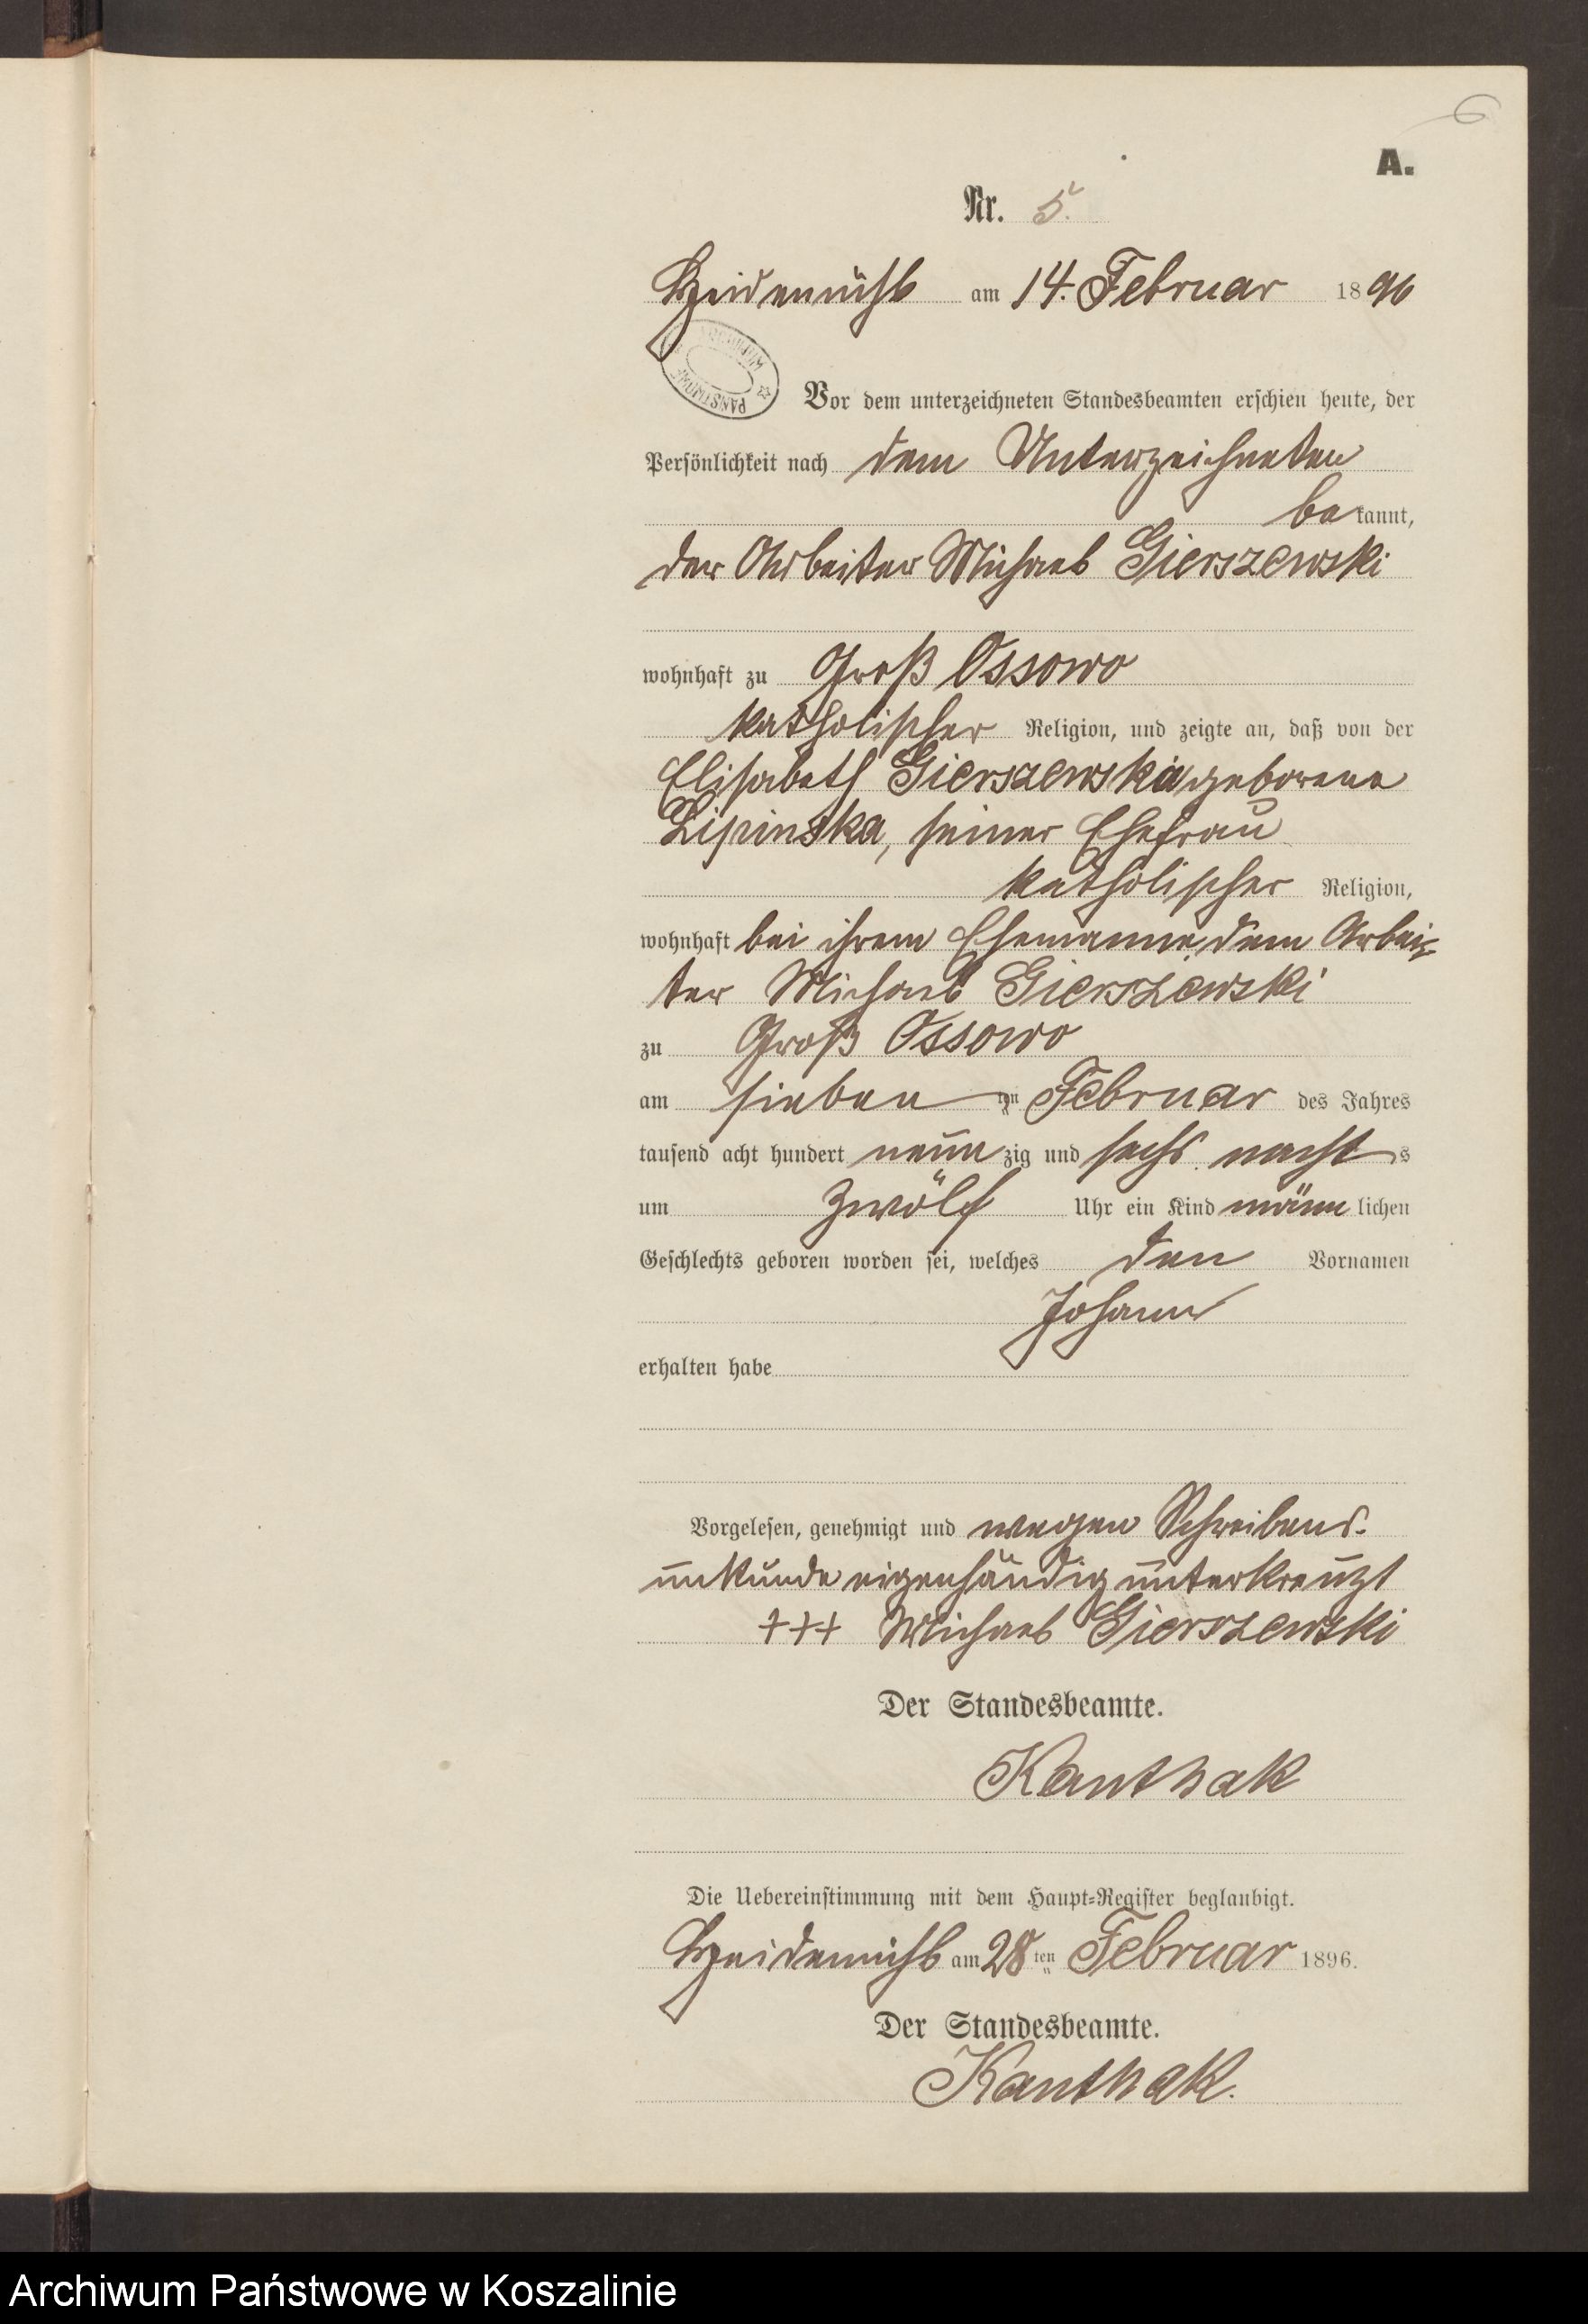 6
A.
Nr. 5.
Heidemühl am 14. Februar 1896
ARCHIWUM PAŃSTWOWE
Vor dem unterzeichneten Standesbeamten erschien heute, der
Persönlichkeit nach dem Unterzeichneten
bekannt,
der Arbeiter Michael Gierszewski
wohnhaft zu Groß Ossowo
katholischer Religion, und zeigte an, daß von der
Elisabeth Gierszewska geborene
Lipinska, seiner Ehefrau
katholischer Religion,
wohnhaft bei ihrem Ehemanne, dem Arbei-
ter Michael Gierszewski
zu Groß Ossowo
am sieben ten Februar des Jahres
tausend acht hundert neun zig und sechs nachts
um zwölf Uhr ein Kind männlichen
Geschlechts geboren worden sei, welches den Vornamen
Johann
erhalten habe
Vorgelesen, genehmigt und wegen Schreibens-
unkunde eigenhändig unterkreuzt
+++ Michael Gierszewski
Der Standesbeamte.
Kanthak
Die Uebereinstimmung mit dem Haupt-Register beglaubigt.
Heidemühl am 28ten Februar 1896.
Der Standesbeamte.
Kanthak.
Archiwum Państwowe w Koszalinie